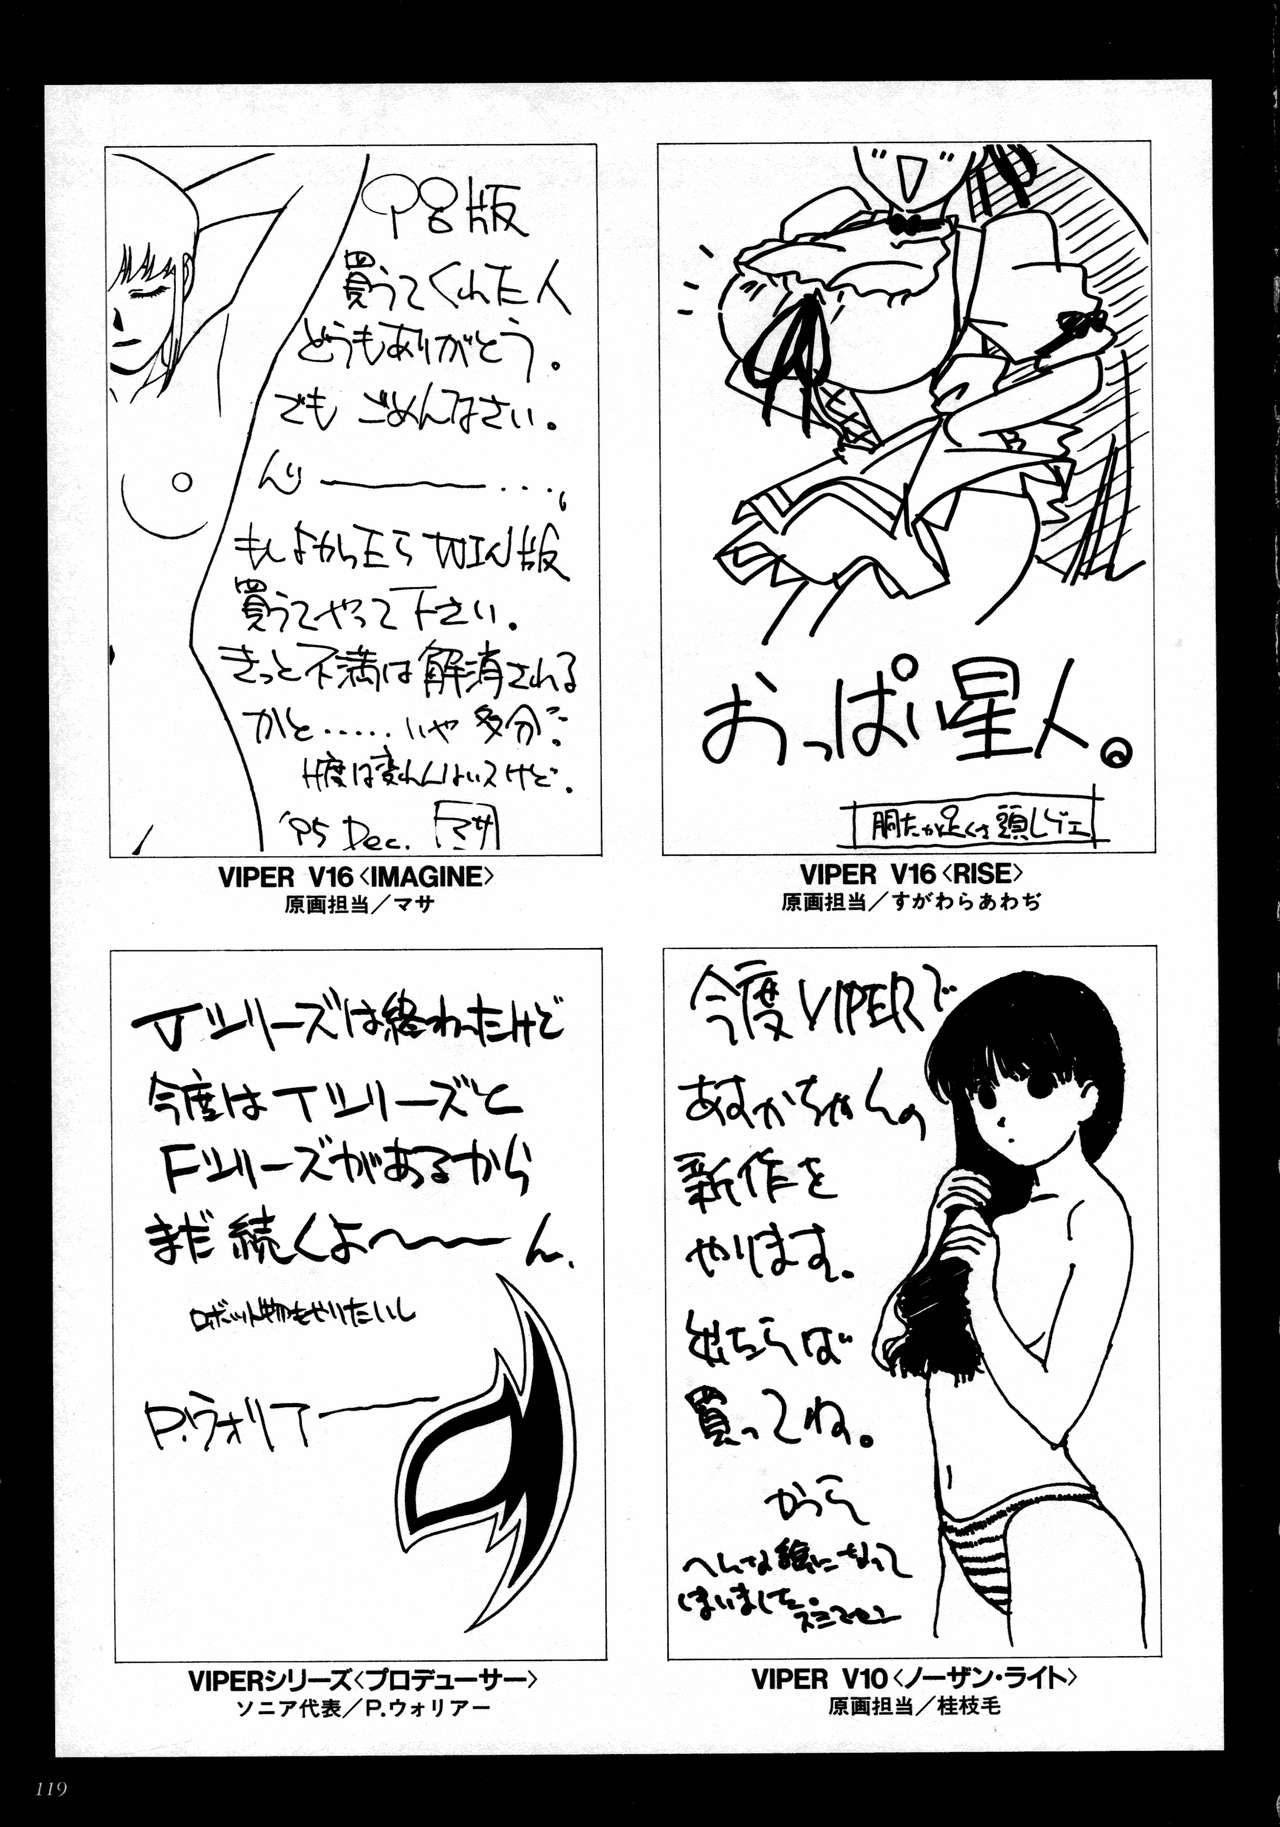 98版
買うてくれた人
どうもありがとう。
でも ごめんなさい。
もしよかったら WIN版
買うてやって下さい。
きっと不満は解消される
かと・・・・・いや 多分…。
H度は変わんないスけど。
'95 Dec. マサ
VIPER V16〈IMAGINE〉
原画担当／マサ
おっぱい星人。
VIPER V16〈RISE〉
原画担当／すがわらあわぢ
Jシリーズは終わったけど
今度はTシリーズと
Fシリーズがあるから
まだ続くよ〜〜〜ん、
ロボット物もやりたいし
P.ウォリアー
VIPERシリーズ〈プロデューサー〉
ソニア代表／P.ウォリアー
今度VIPERで
あすかちゃんの
新作を
やります。
出たらば
買ってね。
かつら
へんな絵になって
しまいました。スミマセン
VIPER V10〈ノーザン・ライト〉
原画担当／桂枝毛
119